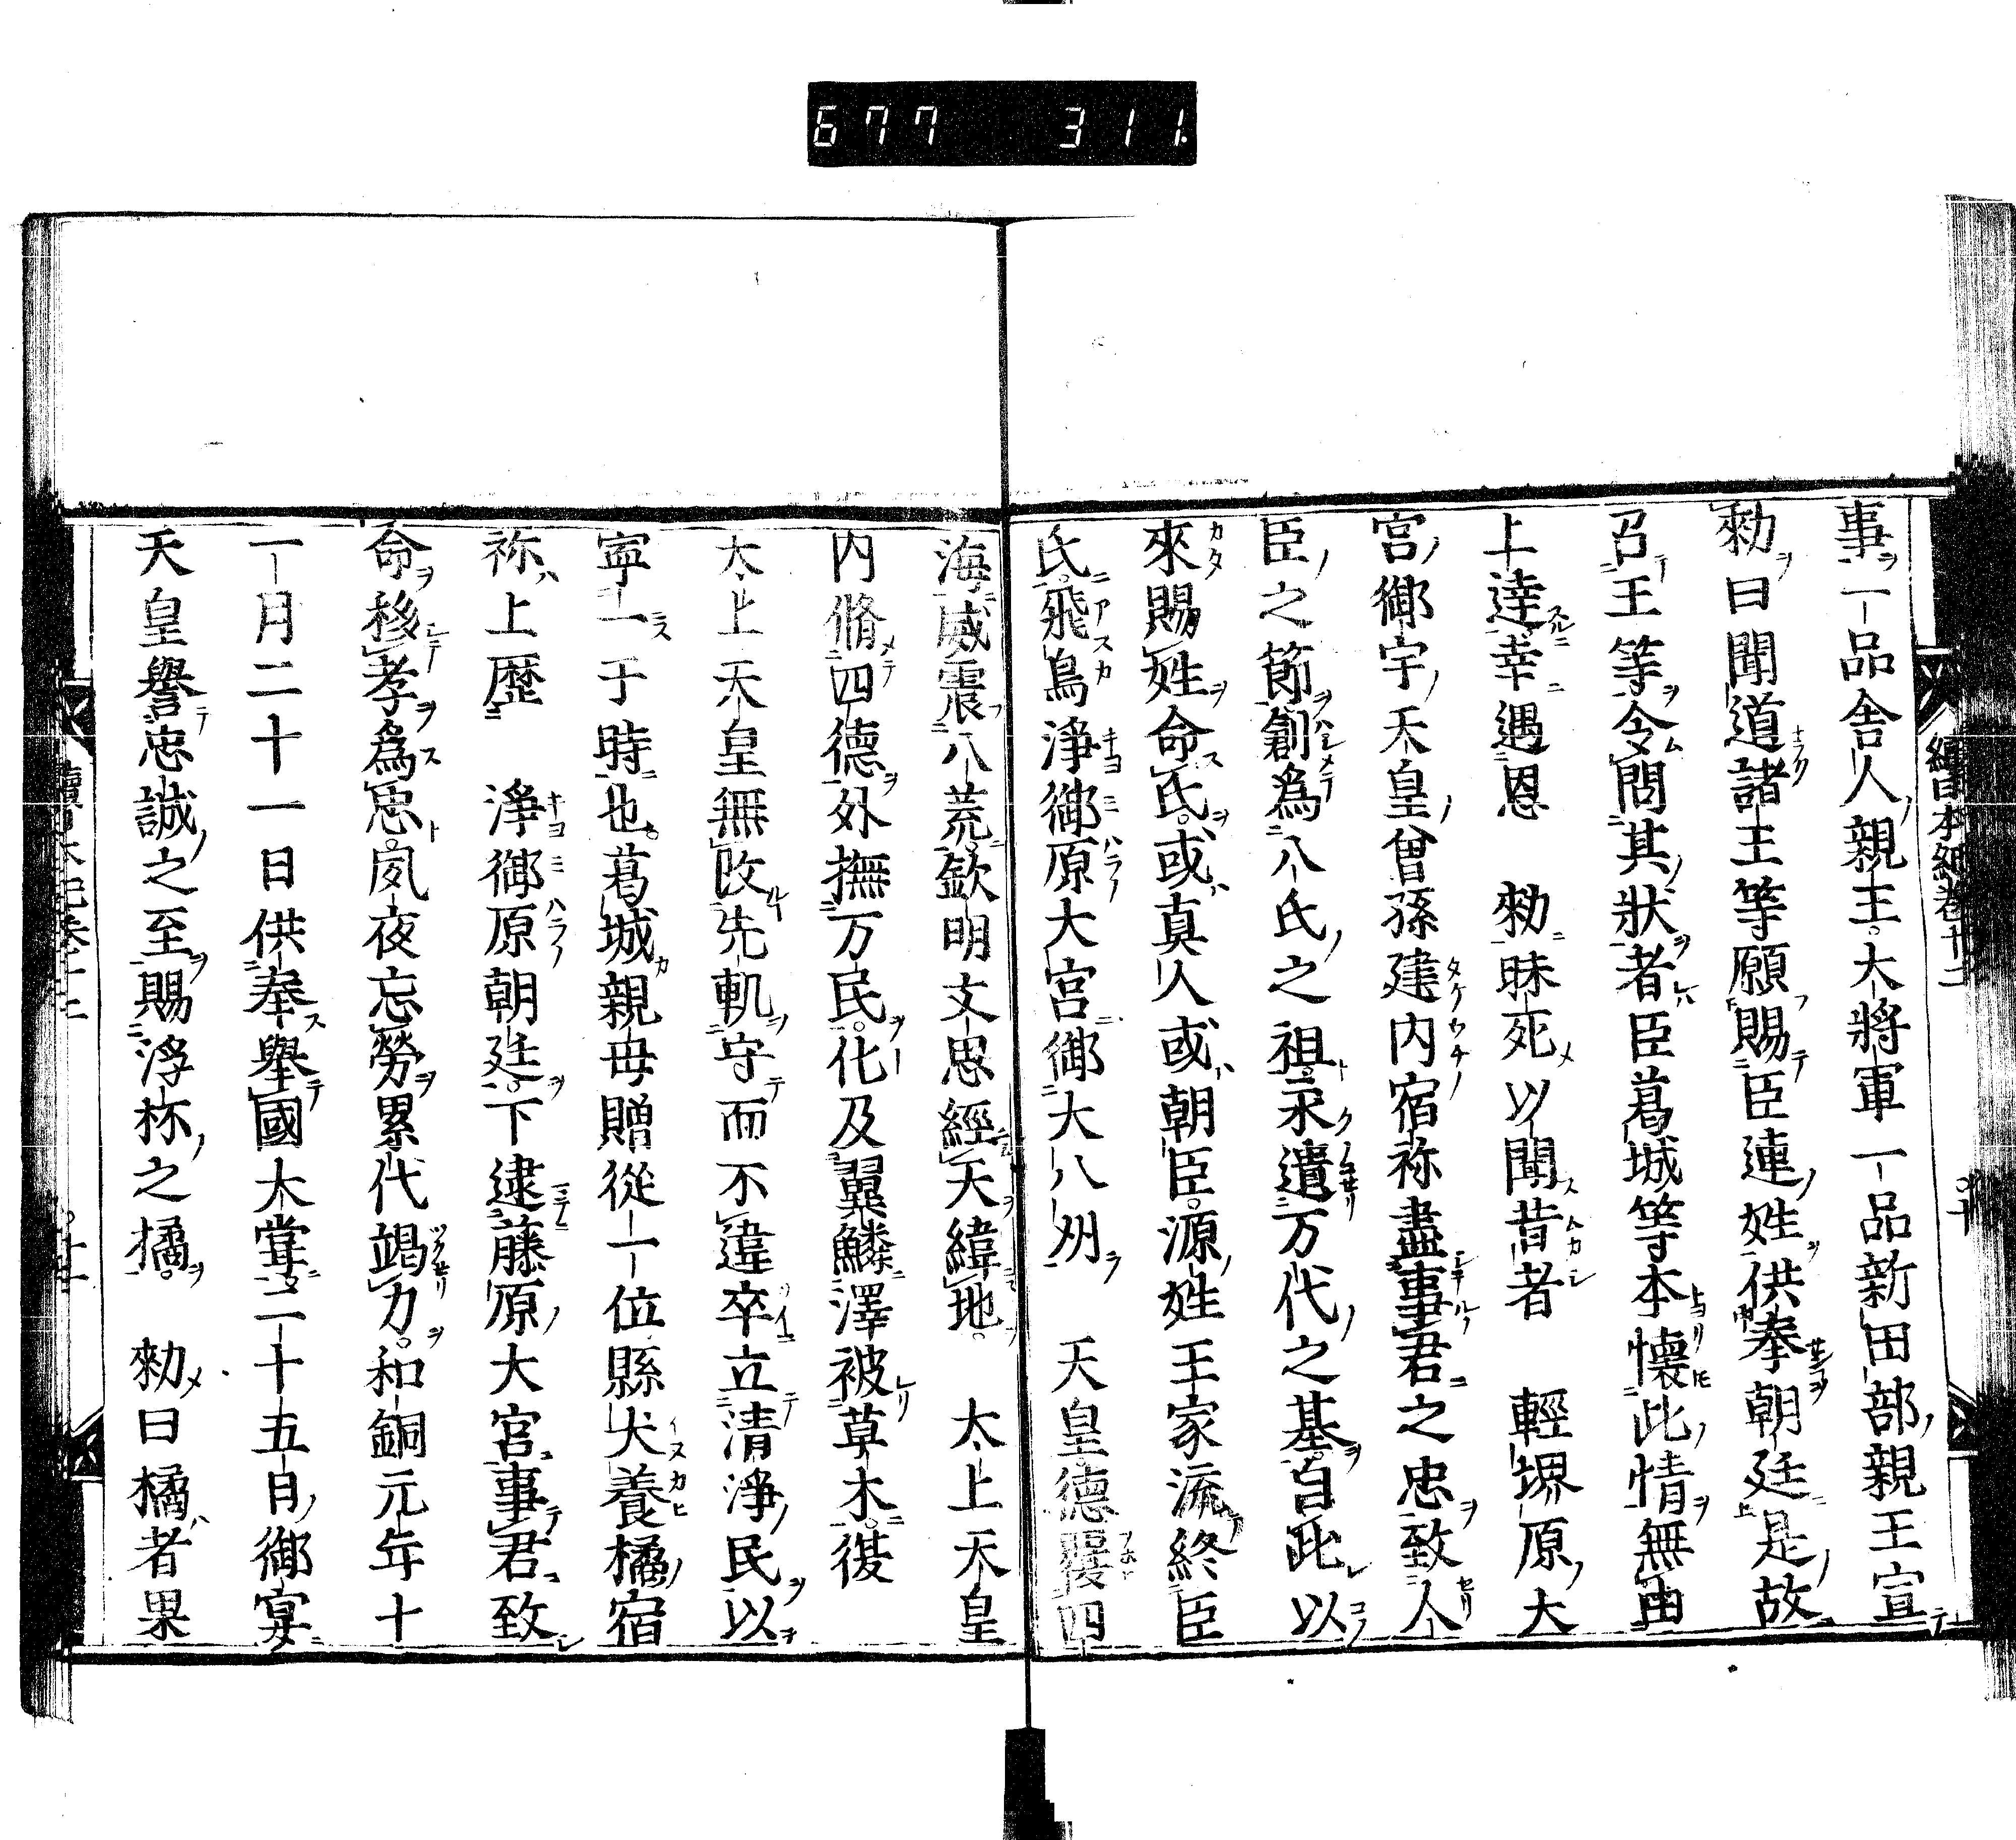 677 311
續日本紀卷十二
事一品舎人親王大將軍一品新田部親王宣
勑曰聞道諸王等願賜臣連姓供奉朝廷是故
召王等令問其狀者臣葛城等本懐此情無由
上逹幸遇恩　勑昧死以聞昔者　輕堺原大
宮御宇天皇曽孫建内宿祢盡事君之忠致人
臣之節創為八氏之祖永遺万代之基自此以
來賜姓命氏或真人或朝臣源姓王家流終臣
氏飛鳥浄御原大宮御大八州　天皇德覆四
海威震八荒欽明文思經天緯地　太上天皇
内脩四德外撫万民化及翼鱗澤被草木復
太上天皇無改先軌守而不違卒立清浄民以
寧一于時也葛城親母贈從一位縣犬養橘宿
祢上歴　浄御原朝廷下逮藤原大宮事君致
命移孝為忠夙夜忘勞累代竭力和銅元年十
一月二十一日供奉舉國大嘗二十五日御宴
天皇譽忠誠之至賜浮杯之橘　勑曰橘者果